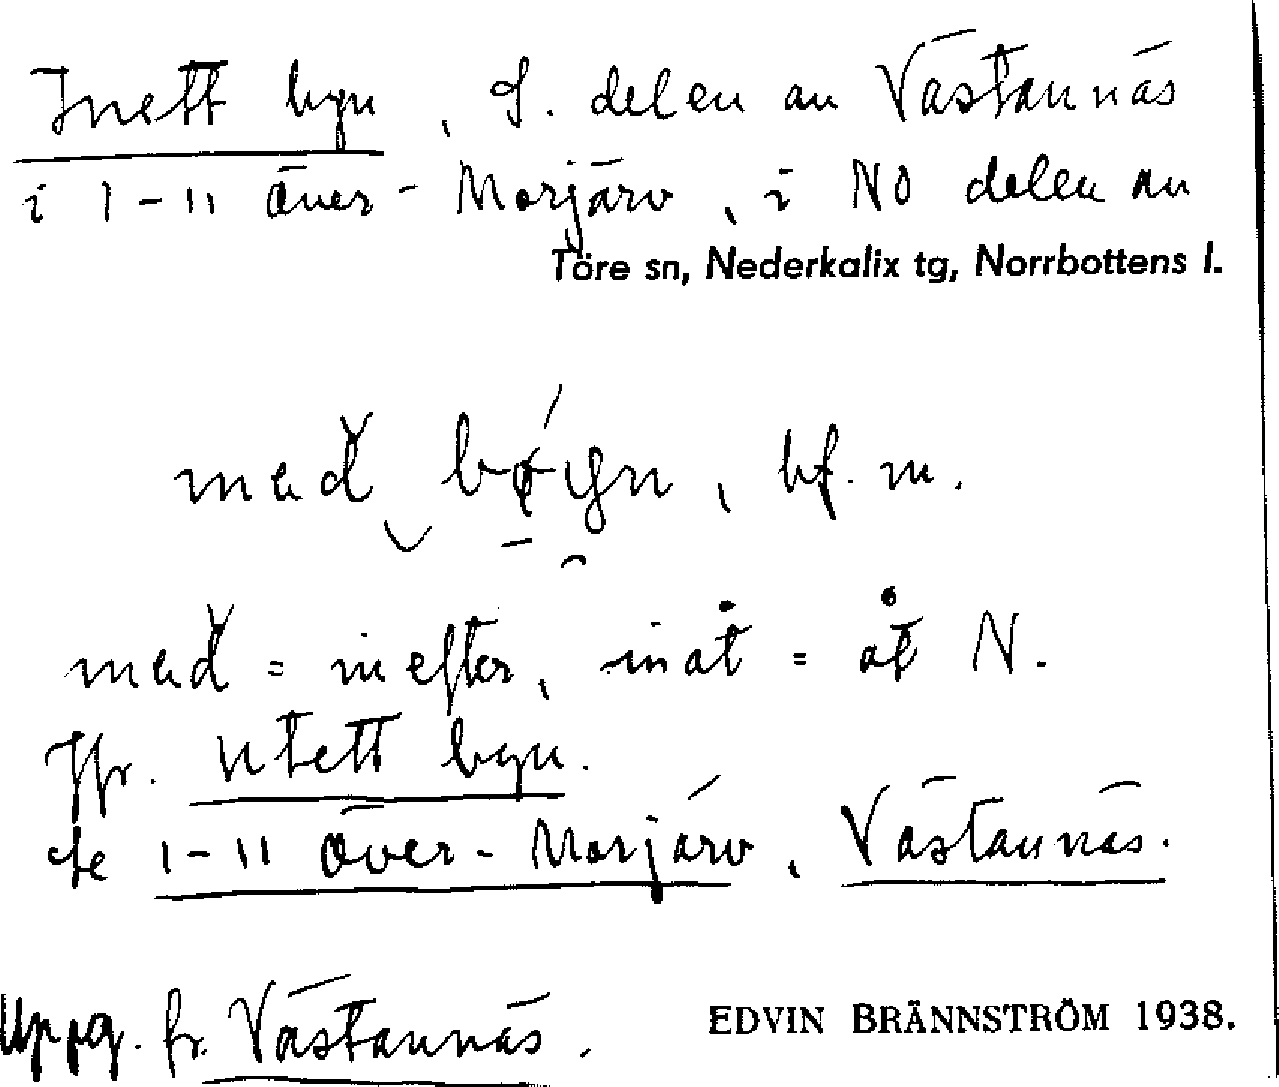 Inett byn, S. delen av Västannäs
i 1-11 Över-Morjärv, i NO delen av
Töre sn, Nederkalix tg, Norrbottens l.
bf. m.
= in efter, inåt = åt N.
Jfr. Utett byn.
Se 1-11 Över-Morjärv, Västannäs.
Uppg. fr. Västannäs.
EDVIN BRÄNNSTRÖM 1938.